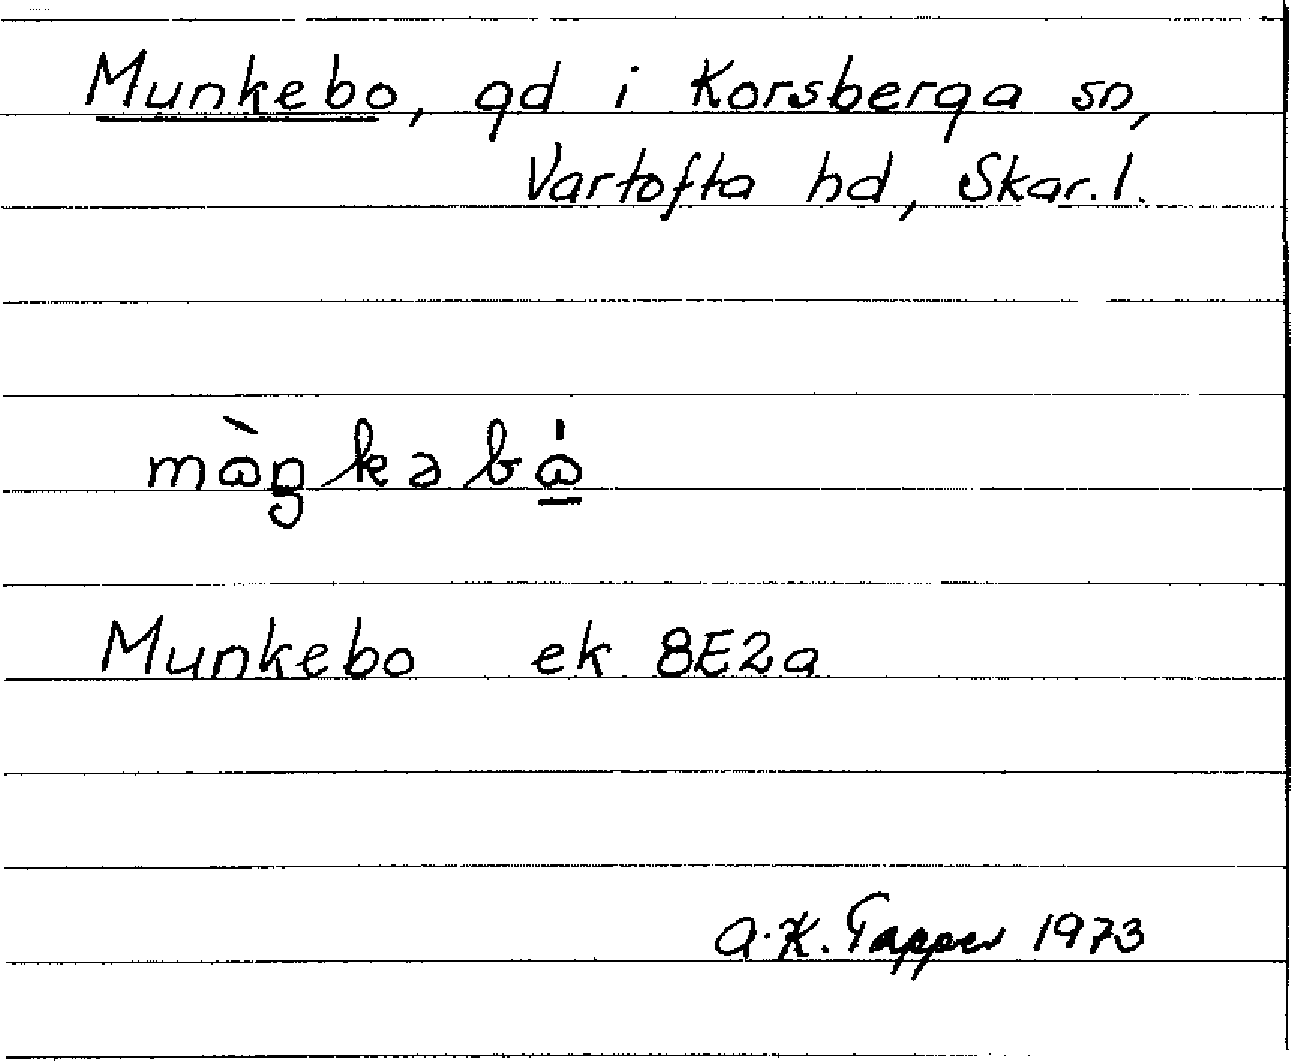 Munkebo, gd i Korsberga sn,
Vartofta hd, Skar. l.
mɷ̀ŋkəbɷ̲̍
Munkebo ek 8E2a
A.K. Tapper 1973